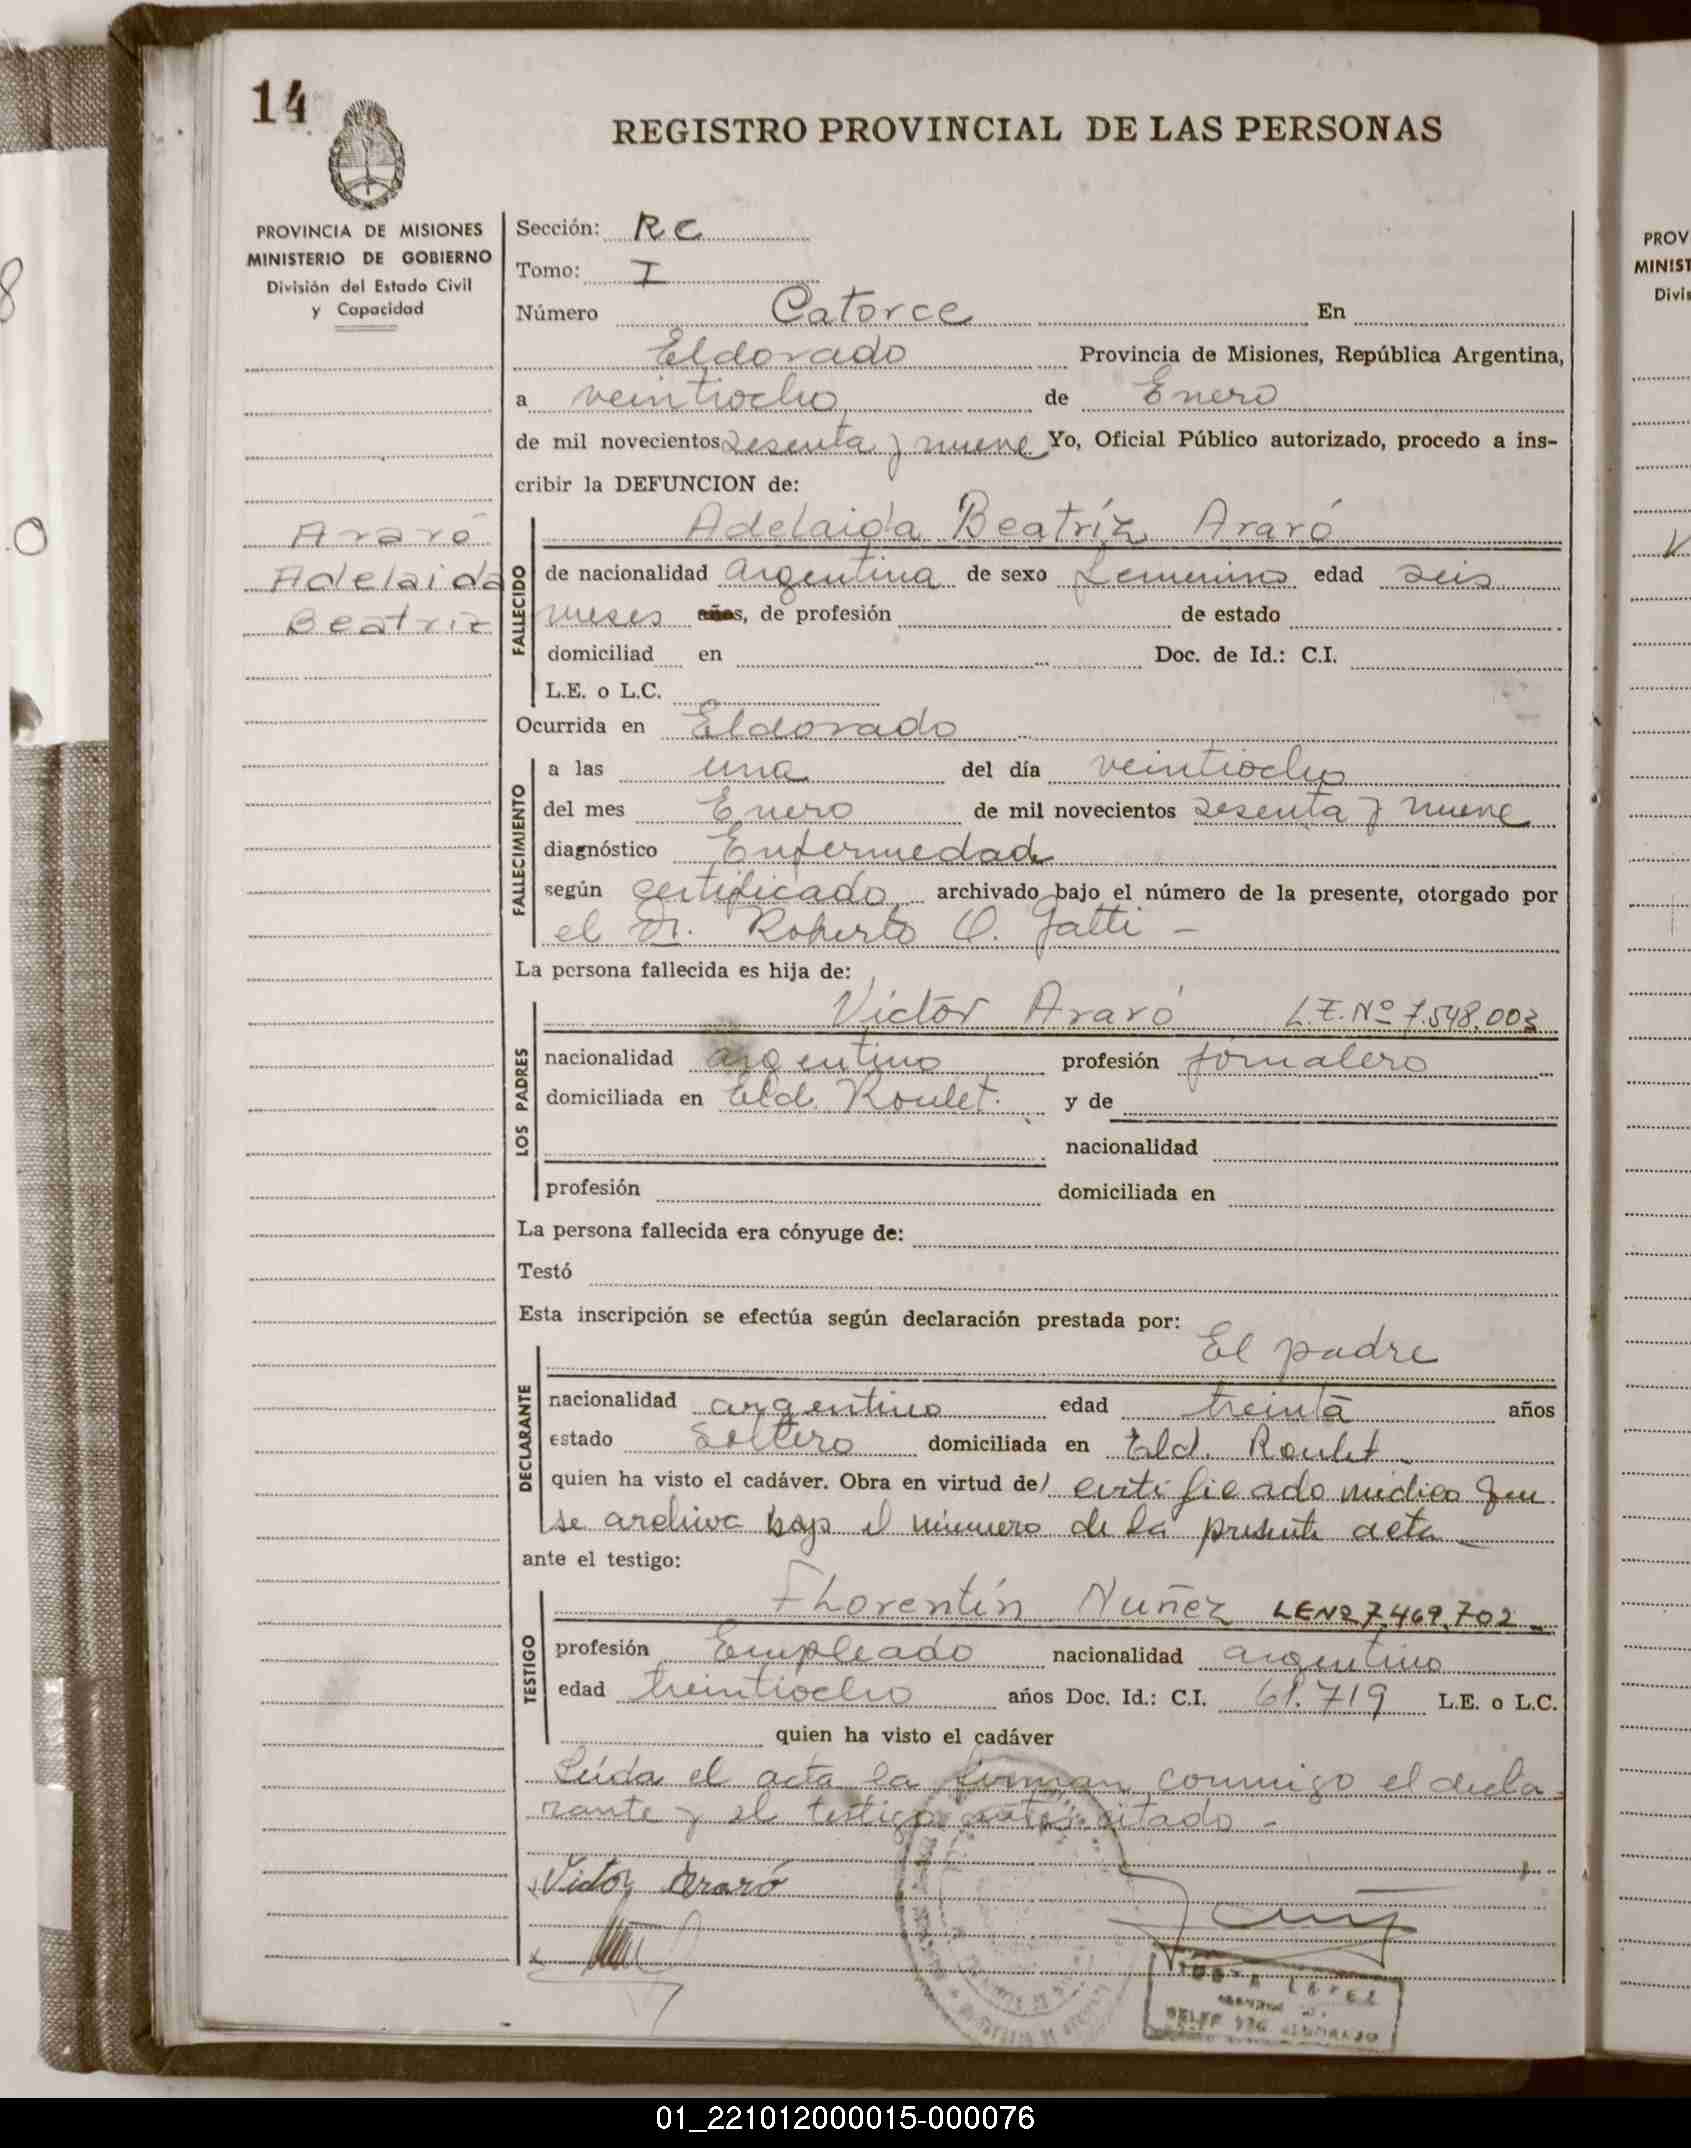 14
REGISTRO PROVINCIAL DE LAS PERSONAS
PROVINCIA DE MISIONES
MINISTERIO DE GOBIERNO
División del Estado Civil
y Capacidad
Araró
Adelaida
Beatriz
Sección: RC
Tomo: I
Número Catorce En
Eldorado Provincia de Misiones, República Argentina,
a veintiocho de Enero
de mil novecientos sesenta y nueve Yo, Oficial Público autorizado, procedo a ins-
cribir la DEFUNCION de:
FALLECIDO
Adelaida Beatríz Araró
de nacionalidad argentina de sexo femenino edad seis
meses años, de profesión de estado
domiciliad en Doc. de Id.: C.I.
L.E. o L.C.
Ocurrida en Eldorado
FALLECIMIENTO
a las una del día veintiocho
del mes Enero de mil novecientos sesenta y nueve
diagnóstico Enfermedad
según certificado archivado bajo el número de la presente, otorgado por
el Dr. Roberto O. Gatti -
La persona fallecida es hija de:
LOS PADRES
Víctor Araró L.E. Nº 7.548.003
nacionalidad argentino profesión jornalero
domiciliada en Eld. Roulet. y de
nacionalidad
profesión domiciliada en
La persona fallecida era cónyuge de:
Testó
Esta inscripción se efectúa según declaración prestada por:
DECLARANTE
El padre
nacionalidad argentino edad treinta años
estado Soltero domiciliada en Eld. Roulet
quien ha visto el cadáver. Obra en virtud de certificado médico que
se archiva bajo el número de la presente acta
ante el testigo:
TESTIGO
Florentín Nuñez LENº 7.469.702
profesión Empleado nacionalidad argentino
edad treintiocho años Doc. Id.: C.I. 61.719 L.E. o L.C.
quien ha visto el cadáver
Leída el acta la firman conmigo el decla-
rante y el testigo antes citado -
Victor Araró
LOPEZ
PROV
MINIST
Divis
01_221012000015-000076